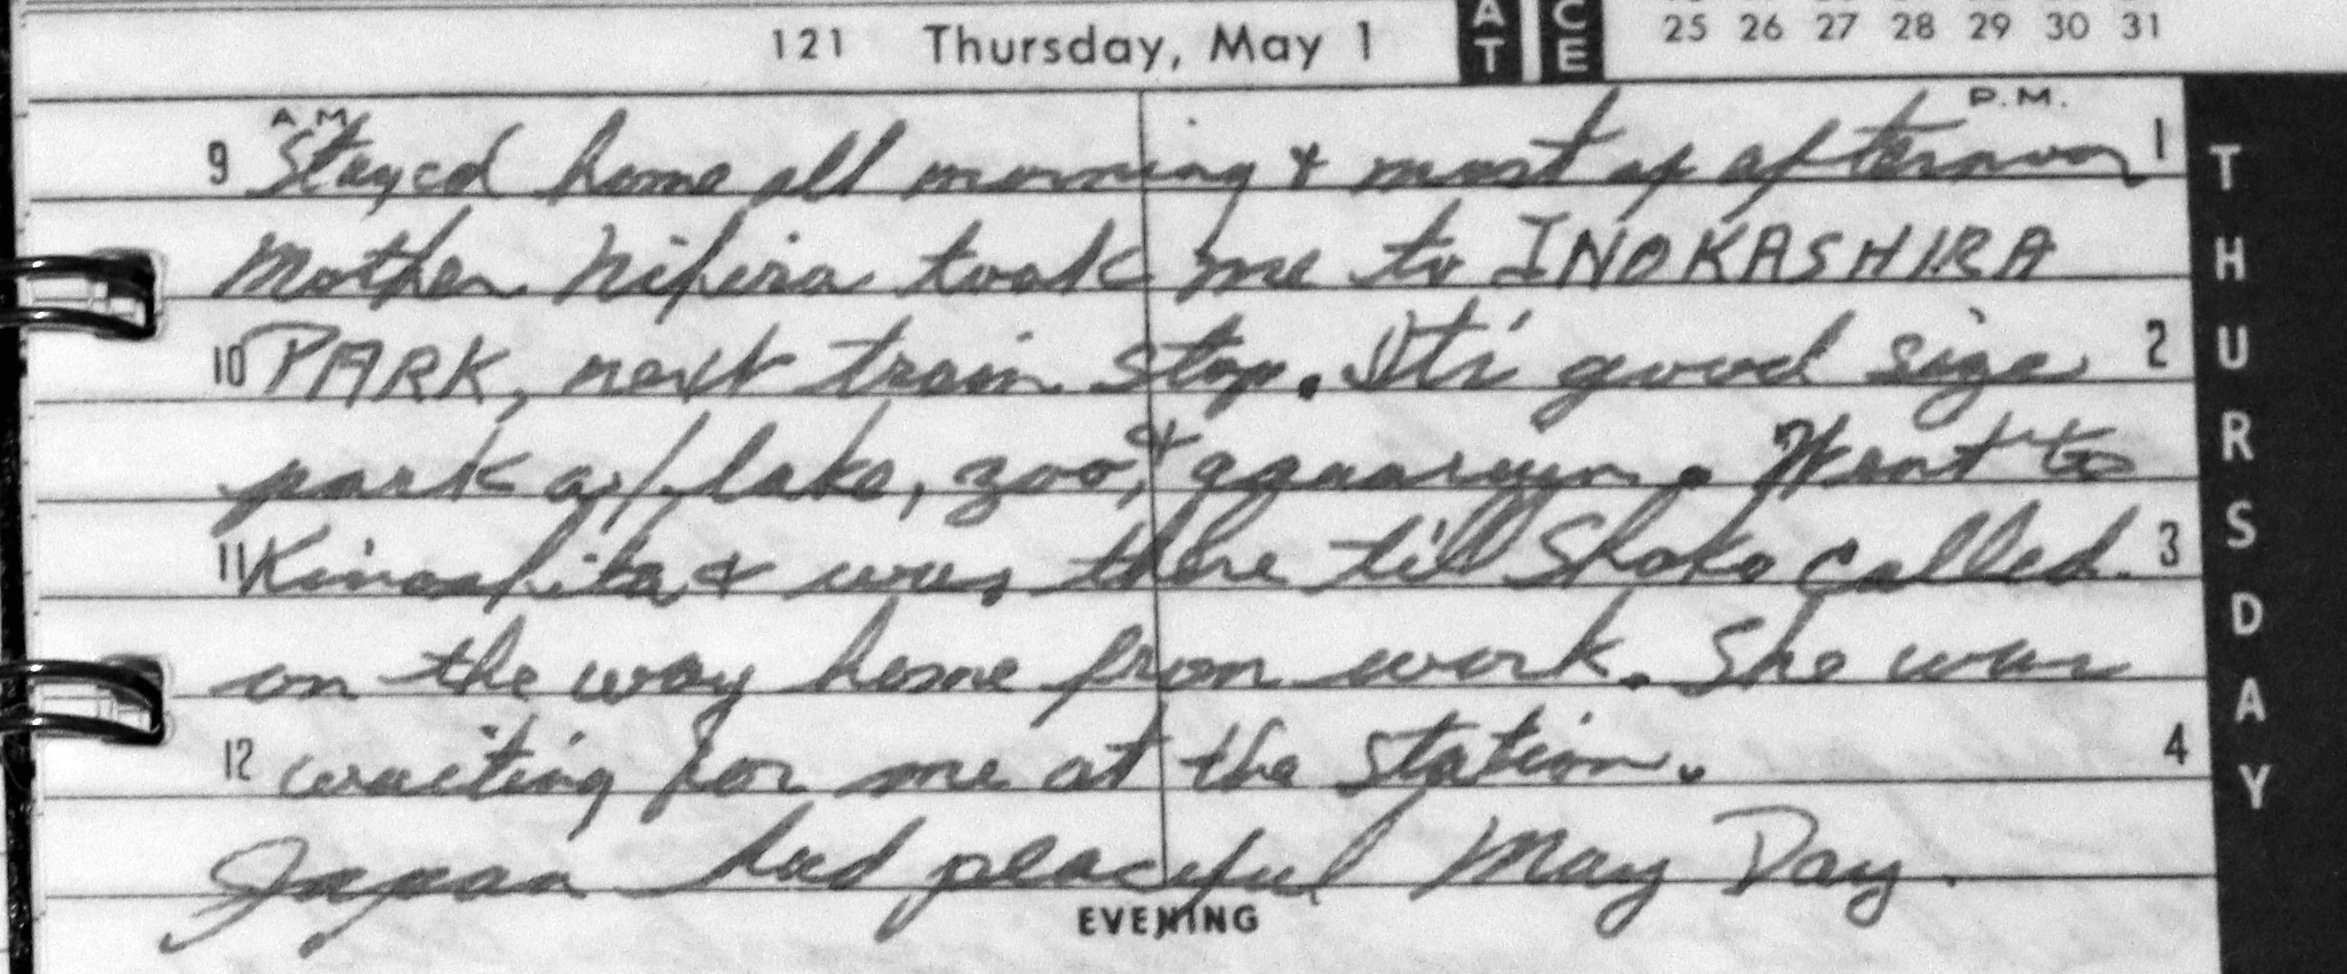 AT CE 25 26 27 28 29 30 31
121 Thursday, May 1
A.M. P.M.
9 Stayed home all morning & most of afternoon 1
Mother Nihira took me to INOKASHIRA
10 PARK, next train stop. It's good size 2
park w/ lake, zoo, & aquarium. Went to
11 Kinoshita & was there till Shoko called 3
on the way home from work. She was
12 waiting for me at the station. 4
Japan had peaceful May Day.
EVENING
THURSDAY